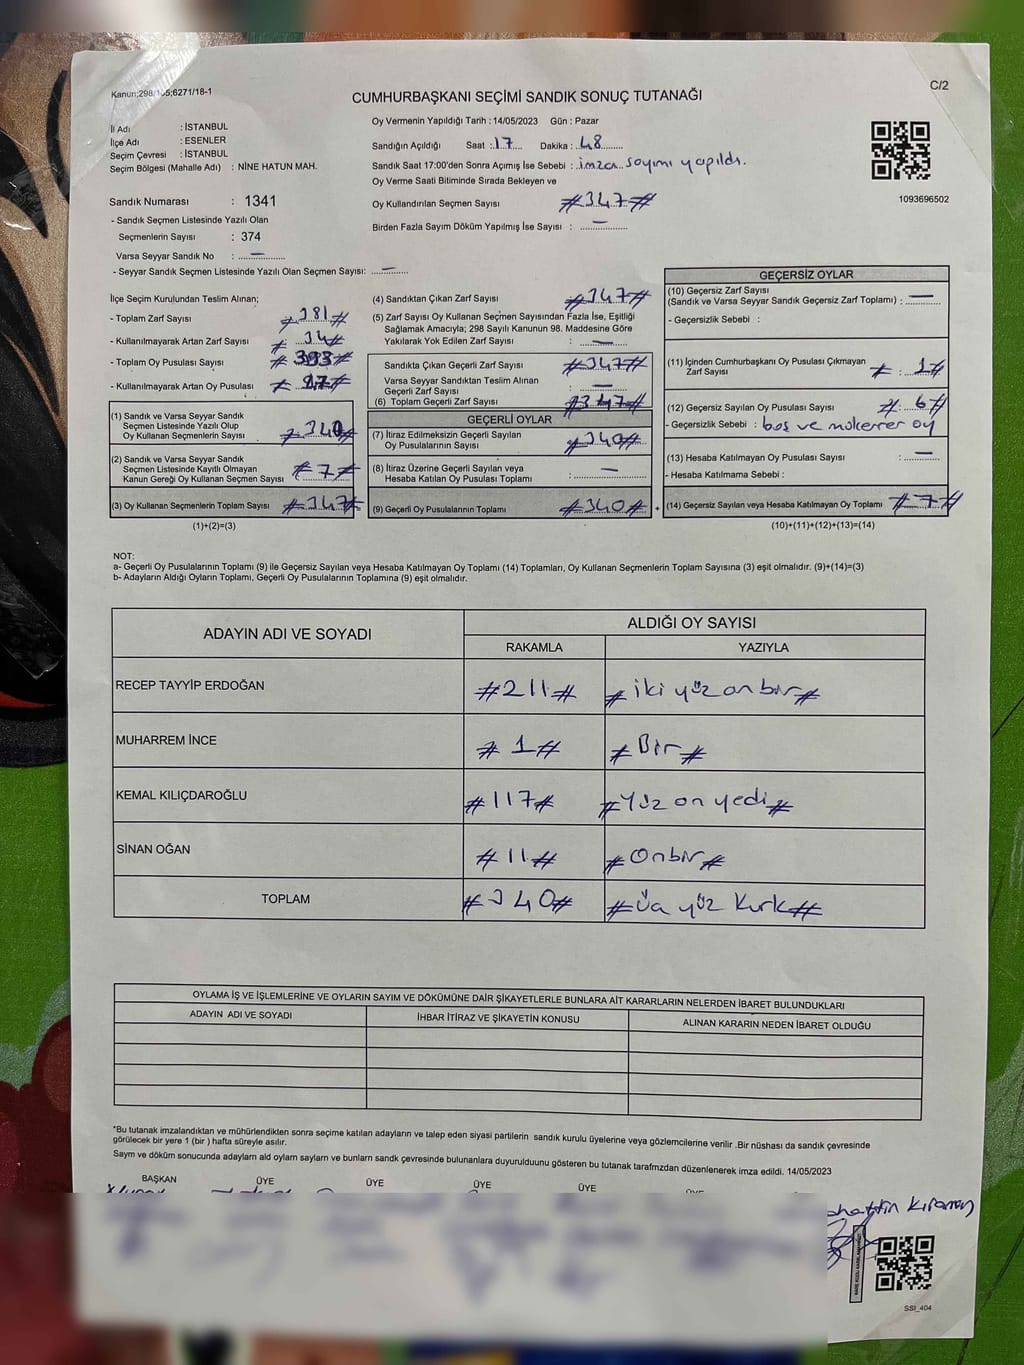 Kanun;298/155;6271/18-1
C/2
CUMHURBAŞKANI SEÇİMİ SANDIK SONUÇ TUTANAĞI
İl Adı : İSTANBUL
İlçe Adı : ESENLER
Seçim Çevresi : İSTANBUL
Seçim Bölgesi (Mahalle Adı) : NİNE HATUN MAH.
Oy Vermenin Yapıldığı Tarih : 14/05/2023 Gün : Pazar
Sandığın Açıldığı Saat : 17 Dakika : 48
Sandık Saat 17:00'den Sonra Açmış İse Sebebi : imza sayımı yapıldı.
Oy Verme Saati Bitiminde Sırada Bekleyen ve
Oy Kullandırılan Seçmen Sayısı #347#
Birden Fazla Sayım Döküm Yapılmış İse Sayısı : —
1093696502
Sandık Numarası : 1341
- Sandık Seçmen Listesinde Yazılı Olan
Seçmenlerin Sayısı : 374
Varsa Seyyar Sandık No : —
- Seyyar Sandık Seçmen Listesinde Yazılı Olan Seçmen Sayısı: —
İlçe Seçim Kurulundan Teslim Alınan;
- Toplam Zarf Sayısı : #381#
- Kullanılmayarak Artan Zarf Sayısı : #34#
- Toplam Oy Pusulası Sayısı #393#
- Kullanılmayarak Artan Oy Pusulası
(1) Sandık ve Varsa Seyyar Sandık
Seçmen Listesinde Yazılı Olup
Oy Kullanan Seçmenlerin Sayısı #340#
(2) Sandık ve Varsa Seyyar Sandık
Seçmen Listesinde Kayıtlı Olmayan
Kanun Gereği Oy Kullanan Seçmen Sayısı #7#
(3) Oy Kullanan Seçmenlerin Toplam Sayısı #347#
(1)+(2)=(3)
(4) Sandıktan Çıkan Zarf Sayısı #347#
(5) Zarf Sayısı Oy Kullanan Seçmen Sayısından Fazla İse, Eşitliği
Sağlamak Amacıyla; 298 Sayılı Kanunun 98. Maddesine Göre
Yakılarak Yok Edilen Zarf Sayısı : —
Sandıkta Çıkan Geçerli Zarf Sayısı #347#
Varsa Seyyar Sandıktan Teslim Alınan
Geçerli Zarf Sayısı : —
(6) Toplam Geçerli Zarf Sayısı #347#
GEÇERLİ OYLAR
(7) İtiraz Edilmeksizin Geçerli Sayılan
Oy Pusulalarının Sayısı #340#
(8) İtiraz Üzerine Geçerli Sayılan veya
Hesaba Katılan Oy Pusulası Toplamı : —
(9) Geçerli Oy Pusulalarının Toplamı #340#
+
GEÇERSİZ OYLAR
(10) Geçersiz Zarf Sayısı
(Sandık ve Varsa Seyyar Sandık Geçersiz Zarf Toplamı) : —
- Geçersizlik Sebebi :
(11) İçinden Cumhurbaşkanı Oy Pusulası Çıkmayan
Zarf Sayısı #1#
(12) Geçersiz Sayılan Oy Pusulası Sayısı #6#
- Geçersizlik Sebebi : boş ve mükerrer oy
(13) Hesaba Katılmayan Oy Pusulası Sayısı : —
- Hesaba Katılmama Sebebi :
(14) Geçersiz Sayılan veya Hesaba Katılmayan Oy Toplamı #7#
(10)+(11)+(12)+(13)=(14)
NOT:
a- Geçerli Oy Pusulalarının Toplamı (9) ile Geçersiz Sayılan veya Hesaba Katılmayan Oy Toplamı (14) Toplamları, Oy Kullanan Seçmenlerin Toplam Sayısına (3) eşit olmalıdır. (9)+(14)=(3)
b- Adayların Aldığı Oyların Toplamı, Geçerli Oy Pusulalarının Toplamına (9) eşit olmalıdır.
ADAYIN ADI VE SOYADI
ALDIĞI OY SAYISI
RAKAMLA YAZIYLA
RECEP TAYYİP ERDOĞAN #211# #iki yüz on bir#
MUHARREM İNCE #1# #Bir#
KEMAL KILIÇDAROĞLU #117# #Yüz on yedi#
SİNAN OĞAN #11# #Onbir#
TOPLAM #340# #üç yüz kırk#
OYLAMA İŞ VE İŞLEMLERİNE VE OYLARIN SAYIM VE DÖKÜMÜNE DAİR ŞİKAYETLERLE BUNLARA AİT KARARLARIN NELERDEN İBARET BULUNDUKLARI
ADAYIN ADI VE SOYADI İHBAR İTİRAZ VE ŞİKAYETİN KONUSU ALINAN KARARIN NEDEN İBARET OLDUĞU
*Bu tutanak imzalandıktan ve mühürlendikten sonra seçime katılan adayların ve talep eden siyasi partilerin sandık kurulu üyelerine veya gözlemcilerine verilir .Bir nüshası da sandık çevresinde
görülecek bir yere 1 (bir ) hafta süreyle asılır.
Saym ve döküm sonucunda adaylarn ald oylarn saylarn ve bunlarn sandk çevresinde bulunanlara duyurulduunu gösteren bu tutanak tarafmzdan düzenlenerek imza edildi. 14/05/2023
BAŞKAN ÜYE ÜYE ÜYE ÜYE ÜYE
SSI_404